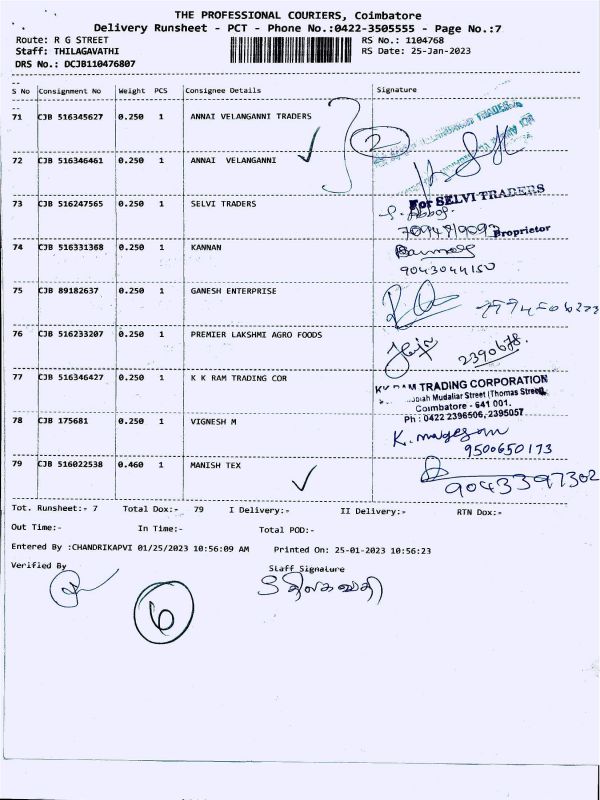 THE PROFESSIONAL COURIERS, Coimbatore
Delivery Runsheet - PCT - Phone No.:0422-3505555 - Page No.:7
Route: R G STREET RS No.: 1104768
Staff: THILAGAVATHI RS Date: 25-Jan-2023
DRS No.: DCJB110476807
S No Consignment No Weight PCS Consignee Details Signature
71 CJB 516345627 0.250 1 ANNAI VELANGANNI TRADERS
2
72 CJB 516346461 0.250 1 ANNAI VELANGANNI
73 CJB 516247565 0.250 1 SELVI TRADERS
For SELVI TRADERS
Proprietor
74 CJB 516331368 0.250 1 KANNAN
9043044150
75 CJB 89182637 0.250 1 GANESH ENTERPRISE
76 CJB 516233207 0.250 1 PREMIER LAKSHMI AGRO FOODS
2390678
77 CJB 516346427 0.250 1 K K RAM TRADING COR
RAM TRADING CORPORATION
Mudaliar Street (Thomas Street)
Coimbatore - 641 001.
Ph : 0422 2396506, 2395057
78 CJB 175681 0.250 1 VIGNESH M
9500650173
79 CJB 516022538 0.460 1 MANISH TEX
9043397302
Tot. Runsheet:- 7 Total Dox:- 79 I Delivery:- II Delivery:- RTN Dox:-
Out Time:- In Time:- Total POD:-
Entered By :CHANDRIKAPVI 01/25/2023 10:56:09 AM Printed On: 25-01-2023 10:56:23
Verified By Staff Signature
6